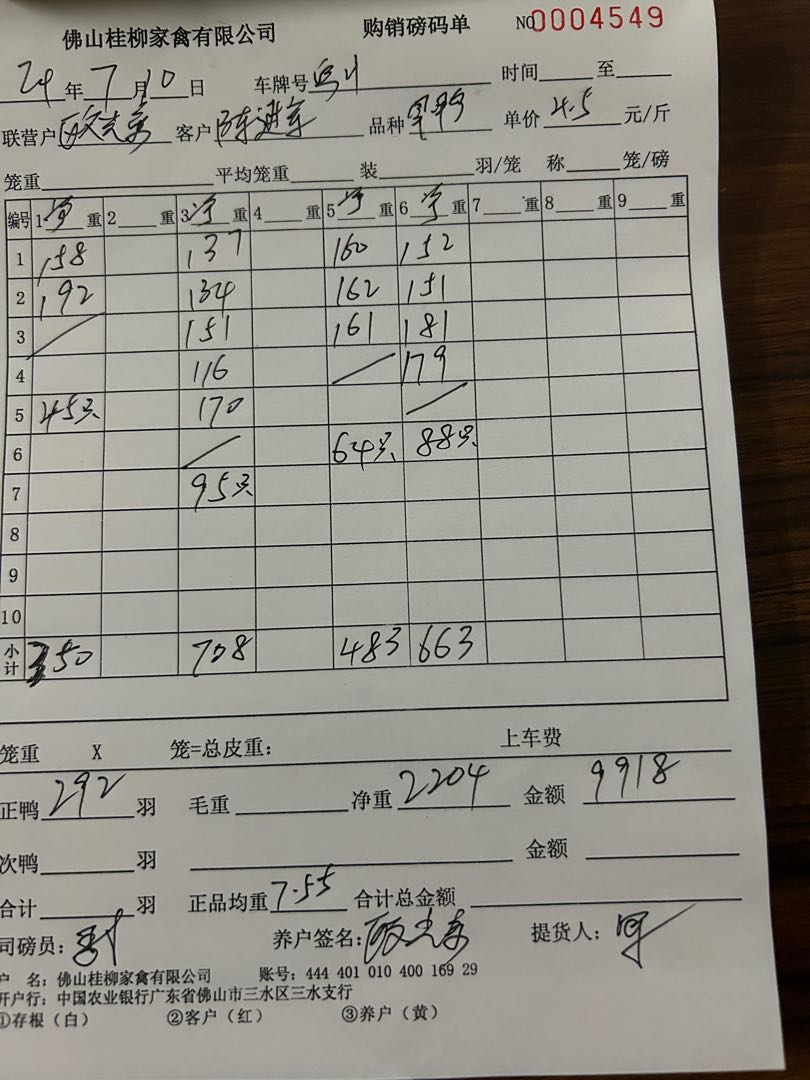 佛山桂柳家禽有限公司 购销磅码单 NO0004549
24年7月10日 车牌号 时间 至
联营户 欧志东 客户 陈进军 品种 单价 4.5 元/斤
笼重 平均笼重 装 羽/笼 称 笼/磅
编号 1 重 2 重 3 重 4 重 5 重 6 重 7 重 8 重 9 重
1 158 137 160 152
2 192 134 162 151
3 151 161 181
4 116 179
5 45只 170
6 64只 88只
7 95只
8
9
10
小计 350 708 483 663
笼重 X 笼=总皮重: 上车费
正鸭 292 羽 毛重 净重 2204 金额 9918
次鸭 羽 金额
合计 羽 正品均重 7.55 合计总金额
司磅员: 养户签名: 欧志东 提货人:
户 名: 佛山桂柳家禽有限公司 账号: 444 401 010 400 169 29
开户行: 中国农业银行广东省佛山市三水区三水支行
①存根（白） ②客户（红） ③养户（黄）